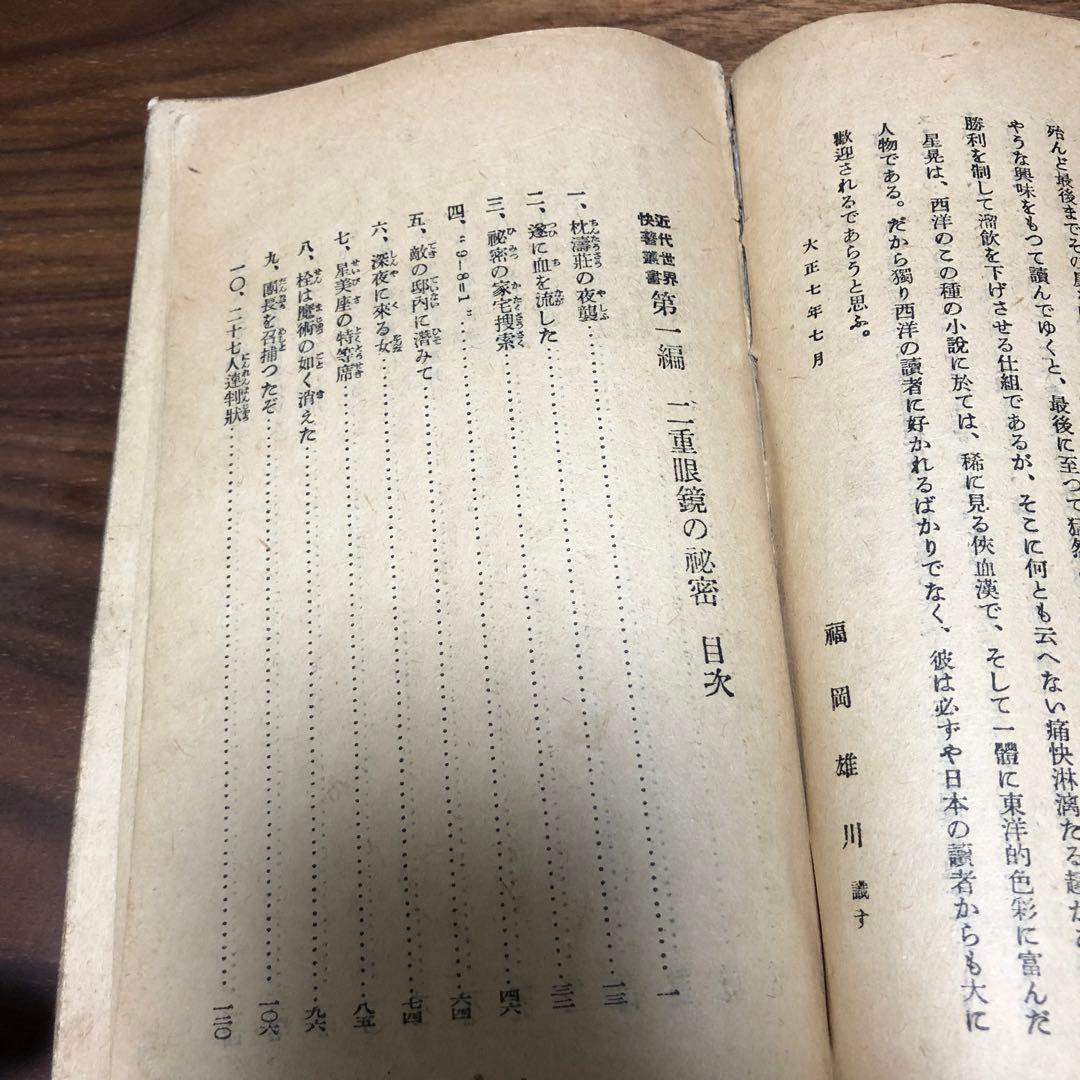 殆んど最後までその
やうな興味をもつて讀んでゆくと、最後に至つて猛然
勝利を制して溜飲を下げさせる仕組であるが、そこに何とも云へない痛快淋漓たる趣が
星晃は、西洋のこの種の小說に於ては、稀に見る俠血漢で、そして一體に東洋的色彩に富んだ
人物である。だから獨り西洋の讀者に好かれるばかりでなく、彼は必ずや日本の讀者からも大に
歡迎されるであらうと思ふ。
大正七年七月
福岡雄川識す
近代世界快著叢書 第一編 二重眼鏡の祕密 目次
一、枕濤莊の夜襲……一
二、遂に血を流した……一三
三、祕密の家宅搜索……三二
四、“9-8=1”……四六
五、敵の邸內に潛みて……六四
六、深夜に來る女……七四
七、星美座の特等席……八五
八、栓は魔術の如く消えた……九六
九、團長を召捕つたぞ……一〇六
一〇、二十七人連判狀……一二〇